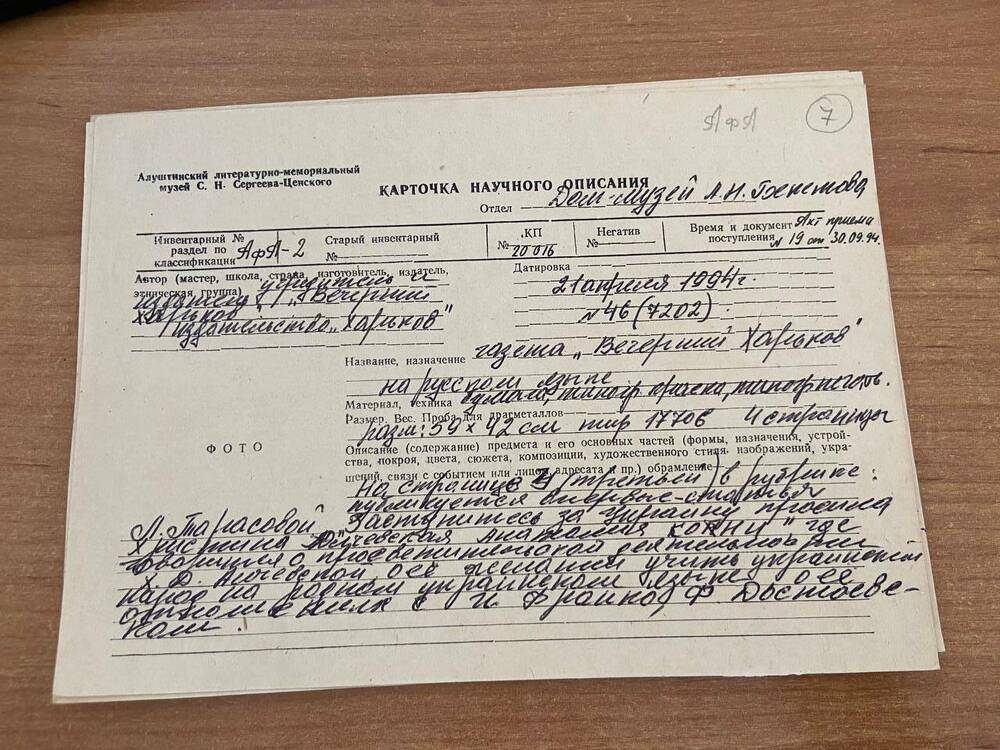 АфА
7
Алуштинский литературно-мемориальный
музей С. Н. Сергеева-Ценского
КАРТОЧКА НАУЧНОГО ОПИСАНИЯ
Отдел Дом-музей А.Н. Бекетова
Инвентарный №
раздел по
классификации АфА-2
Старый инвентарный
№
КП
№ 20016
Негатив
№
Время и документ Акт приема
поступления №19 от 30.09.94.
Автор (мастер, школа, страна, изготовитель, издатель,
этническая группа) учредитель и
издатель „Вечерний
Харьков"
Издательство „Харьков"
Датировка
21 апреля 1994 г.
№46 (7202)
Название, назначение газета „Вечерний Харьков"
на русском языке
Материал, техника бумага, типогр. краска, типогр. изготов.
Размер. Вес. Проба для драгметаллов
разм: 59 х 42 см тир 17706 4 страницы
ФОТО
Описание (содержание) предмета и его основных частей (формы, назначения, устрой-
ства, покроя, цвета, сюжета, композиции, художественного стиля, изображений, укра-
шений, связи с событием или лицом, адресата и пр.) обрамление
На странице 3 (третьей) в рубрике:
публикуется впервые - статья
Л. Тарасовой „Заступитесь за Украину просила
Христина Алчевская Анатолия Кони" где
говорится о просветительской деятельности
Х. Д. Алчевской, её желании учить украинский
народ на родном украинском языке, о её
отношениях с И. Франко, Ф. Достоевс-
ким.